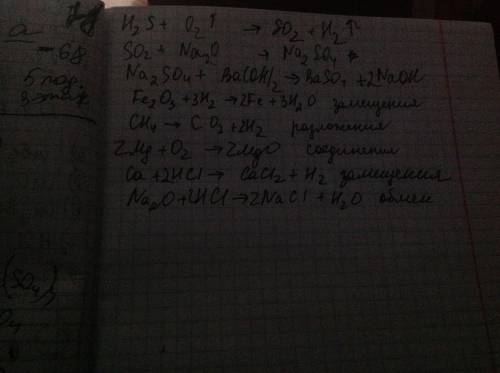 а
68
5 под.
3 этаж
H₂S + O₂↑ → SO₂ + H₂↑
SO₂ + Na₂O → Na₂SO₄
Na₂SO₄ + Ba(OH)₂ → BaSO₄ + 2NaOH
Fe₂O₃ + 3H₂ → 2Fe + 3H₂O замещения
CH₄ → CO₂ + 2H₂ разложения
2Mg + O₂ → 2MgO соединения
Ca + 2HCl → CaCl₂ + H₂ замещения
Na₂O + 2HCl → 2NaCl + H₂O обмен
(SO₄)
O₄